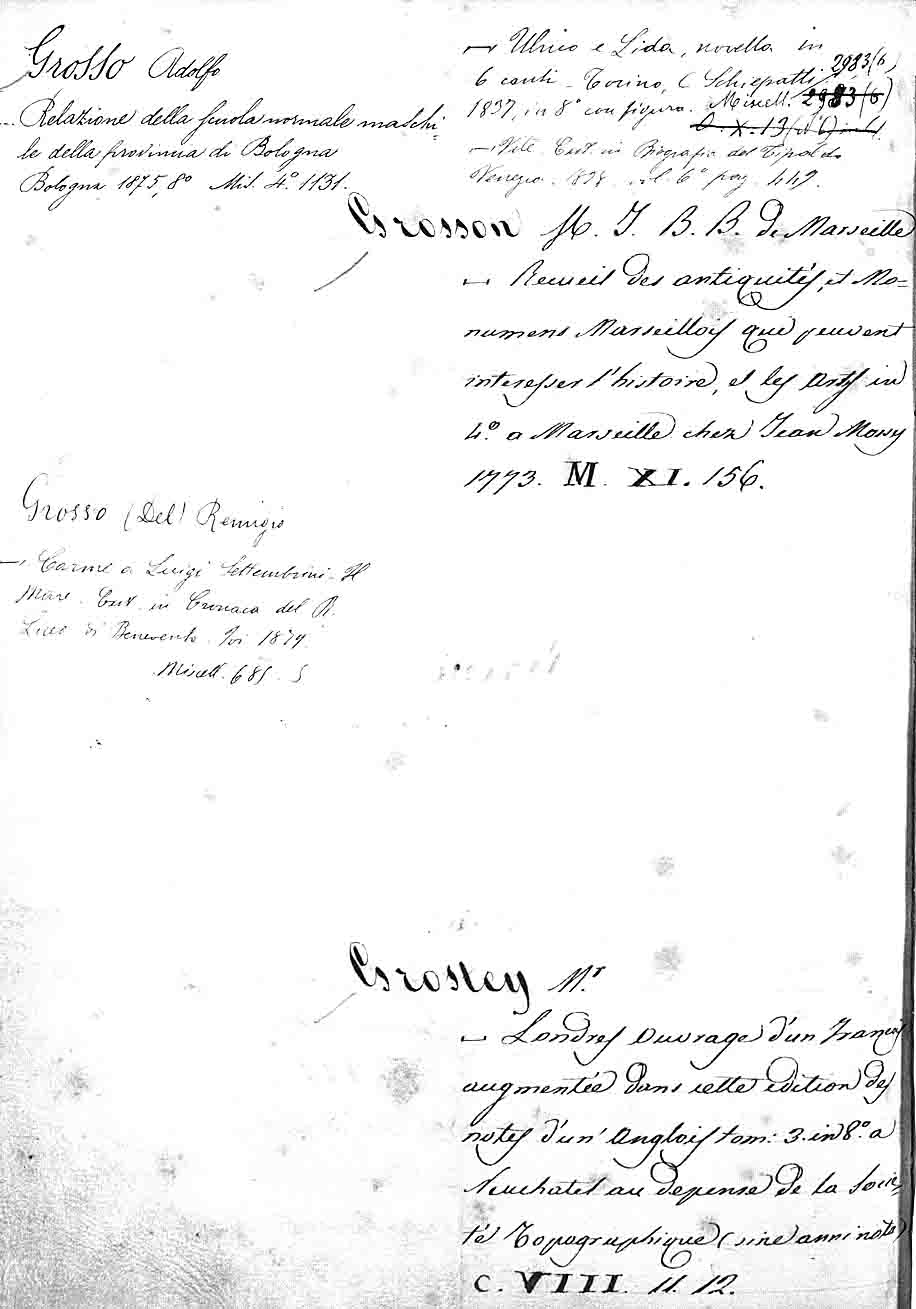 Grosso Adolfo
Relazione della scuola normale maschi-
le della provincia di Bologna
Bologna 1875, 8º Mis. 4º. 1131.
— Ulrico e Lida, novella in
6 canti - Torino, Schiepatti 2983(6)
1837, in 8º con figura. Miscell. 2983(6)
— Vite. Est. in Biografia del Tipaldo
Venezia 6º pag. 449.
Grosson M. J. B. B. de Marseille
— Recueil des antiquités, et Mo=
numens Marseillois que peuvent
interesser l'histoire, et les Arts in
4º. a Marseille chez Jean Mossy
1773. M. XI. 156.
Grosso (Del) Remigio
— Carme a Luigi Settembrini - Il
Mare. Est. in Cronaca del R.
Liceo di Benevento. 1879.
Miscell. 685. 5
Grosley Mr
— Londres Ouvrage d'un François
augmentée dans cette edition des
notes d'un Anglois tom: 3. in 8º. a
Neuchatel au depense de la Socie-
té Topographique (sine anni nota)
C. VIII. 11. 12.